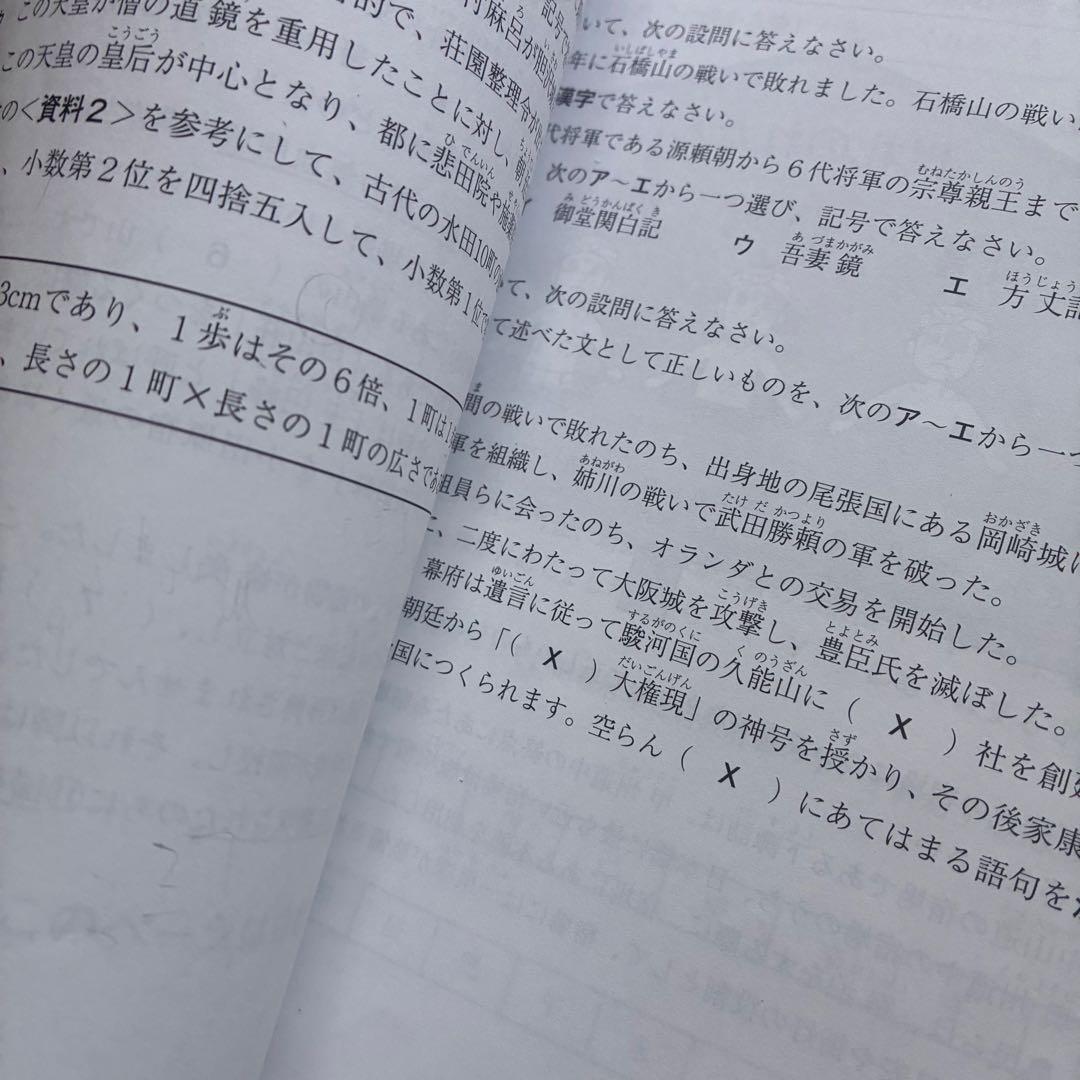 この天皇が僧の道鏡を重用したことに対し、
この天皇の皇后が中心となり、都に悲田院や
の<資料2>を参考にして、古代の水田10町の
、小数第2位を四捨五入して、小数第1位
3cmであり、1歩はその6倍、1町は
、長さの1町×長さの1町の広さで
いて、次の設問に答えなさい。
年に石橋山の戦いで敗れました。石橋山の戦い
漢字で答えなさい。
代将軍である源頼朝から6代将軍の宗尊親王まで
次のア～エから一つ選び、記号で答えなさい。
御堂関白記 ウ 吾妻鏡 エ 方丈記
て、次の設問に答えなさい。
て述べた文として正しいものを、次のア～エから一つ
間の戦いで敗れたのち、出身地の尾張国にある岡崎城に
軍を組織し、姉川の戦いで武田勝頼の軍を破った。
組員らに会ったのち、オランダとの交易を開始した。
、二度にわたって大阪城を攻撃し、豊臣氏を滅ぼした。
幕府は遺言に従って駿河国の久能山に( X )社を創
朝廷から「( X )大権現」の神号を授かり、その後家康
国につくられます。空らん( X )にあてはまる語句を